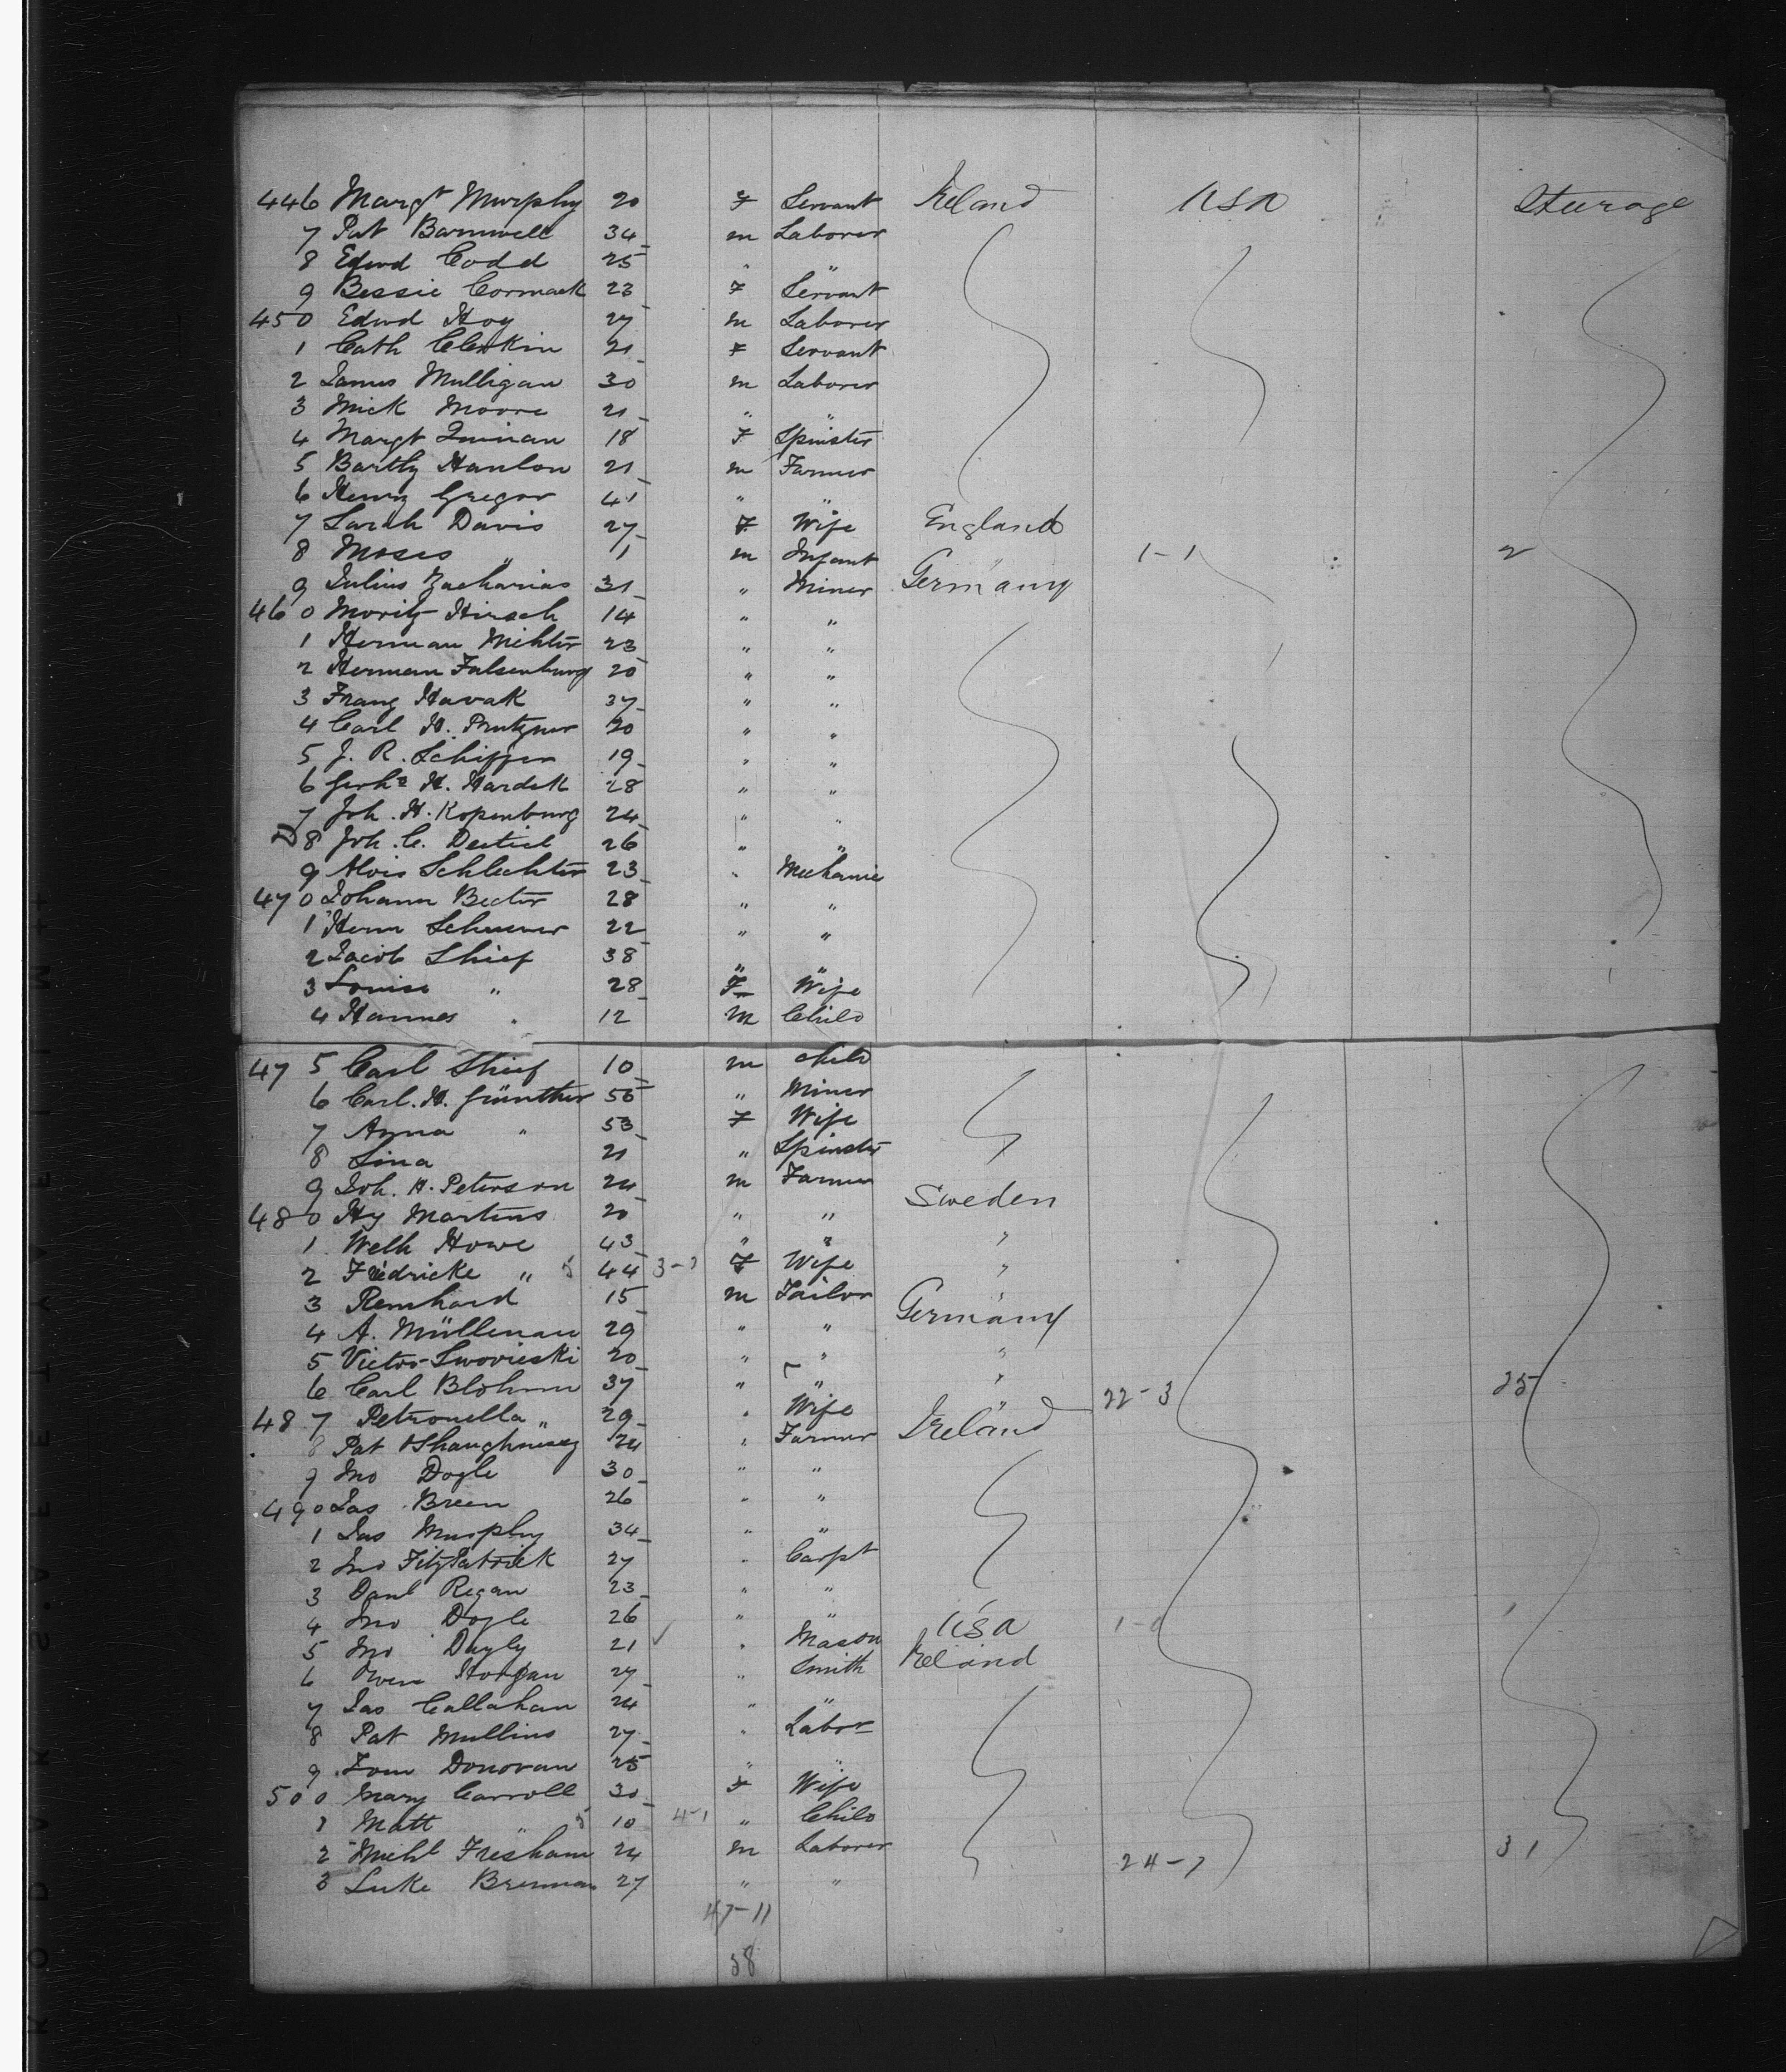 446 Margt Murphy 20 F Servant Ireland USA Steerage
7 Pat Barnwell 34 m Laborer
8 Edwd Codd 25 " "
9 Bessie Cormack 23 F Servant
450 Edwd Hoy 27 m Laborer
1 Cath Clerkin 21 F Servant
2 James Mulligan 30 m Laborer
3 Mick Moore 21 " "
4 Margt Quinan 18 F Spinster
5 Bartly Hanlon 21 m Farmer
6 Henry Gregor 41 " "
7 Sarah Davis 27 F Wife England
8 Moses " 1 m Infant " 1-1 2
9 Julius Zacharias 31 " Miner Germany
460 Moritz Hirsch 14 " "
1 Herman 23 " "
2 Herman Falsenburg 20 " "
3 Franz Havak 37 " "
4 Carl H. 20 " "
5 J. R. Schiffer 19 " "
6 H. Hardek 28 " "
7 Joh. H. Kopenburg 24 " "
8 Joh. C. 26 " "
9 Alois Schlechter 23 " Mechanic
470 Johann Bector 28 " "
1 Herm 22 " "
2 Jacob Shief 38 " "
3 Louise " 28 F Wife
4 Hannes " 12 m Child
475 Carl Shief 10 m child
6 Carl. H. Günther 56 " Miner
7 Anna " 53 F Wife
8 Lina 21 " Spinster
9 Joh. H. Peterson 24 m Farmer Sweden
480 Hy Martens 20 " "
1 Welh Howe 43 " " "
2 Fredricke " 5 44 3-1 F Wife "
3 Reinhard 15 m Tailor Germany
4 A. Müllenau 29 " "
5 Victor 20 " " "
6 Carl Blohm 37 " " " 22-3 25
487 Petronella " 29 " Wife "
8 Pat OShaughnessy 24 " Farmer Ireland
9 Jno Doyle 30 " "
490 Jas Breen 26 " "
1 Jas Murphy 34 " "
2 Jno FitzPatrick 27 " Carpt
3 Danl Regan 23 " "
4 Jno Doyle 26 " " USA 1-0 1
5 Jno Dayly 21 " Mason Ireland
6 Owen Horgan 27 " Smith
7 Jas Callahan 24 " "
8 Pat Mullins 27 " Labor
9 Tom Donovan 25 " "
500 Mary Carroll 30 F Wife
1 Matt " 5 10 4-1 " Child
2 Michl 24 m Laborer 24-7 31
3 Luke Brennan 27 " "
47-11
58